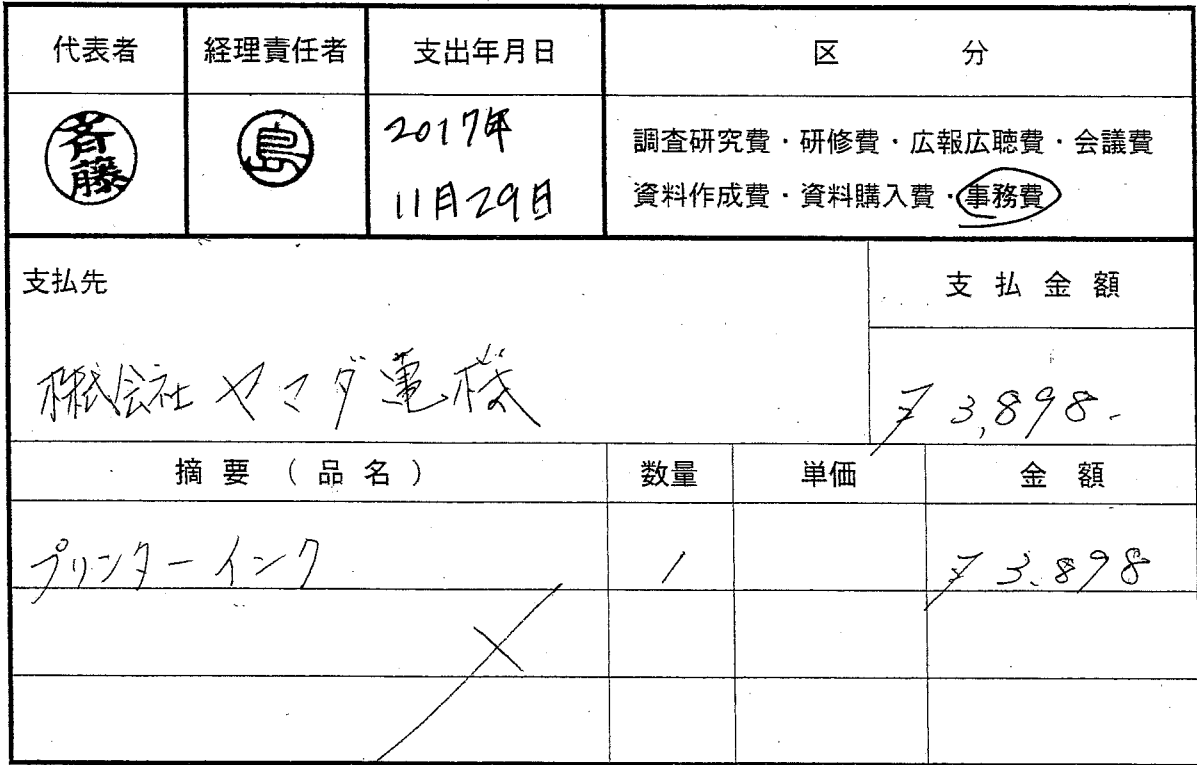 代表者 経理責任者 支出年月日 区分
斉藤 島 2017年
11月29日
調査研究費・研修費・広報広聴費・会議費
資料作成費・資料購入費・事務費
支払先 支払金額
株式会社ヤマダ電機 ¥3,898-
摘要(品名) 数量 単価 金額
プリンターインク 1 ¥3,898